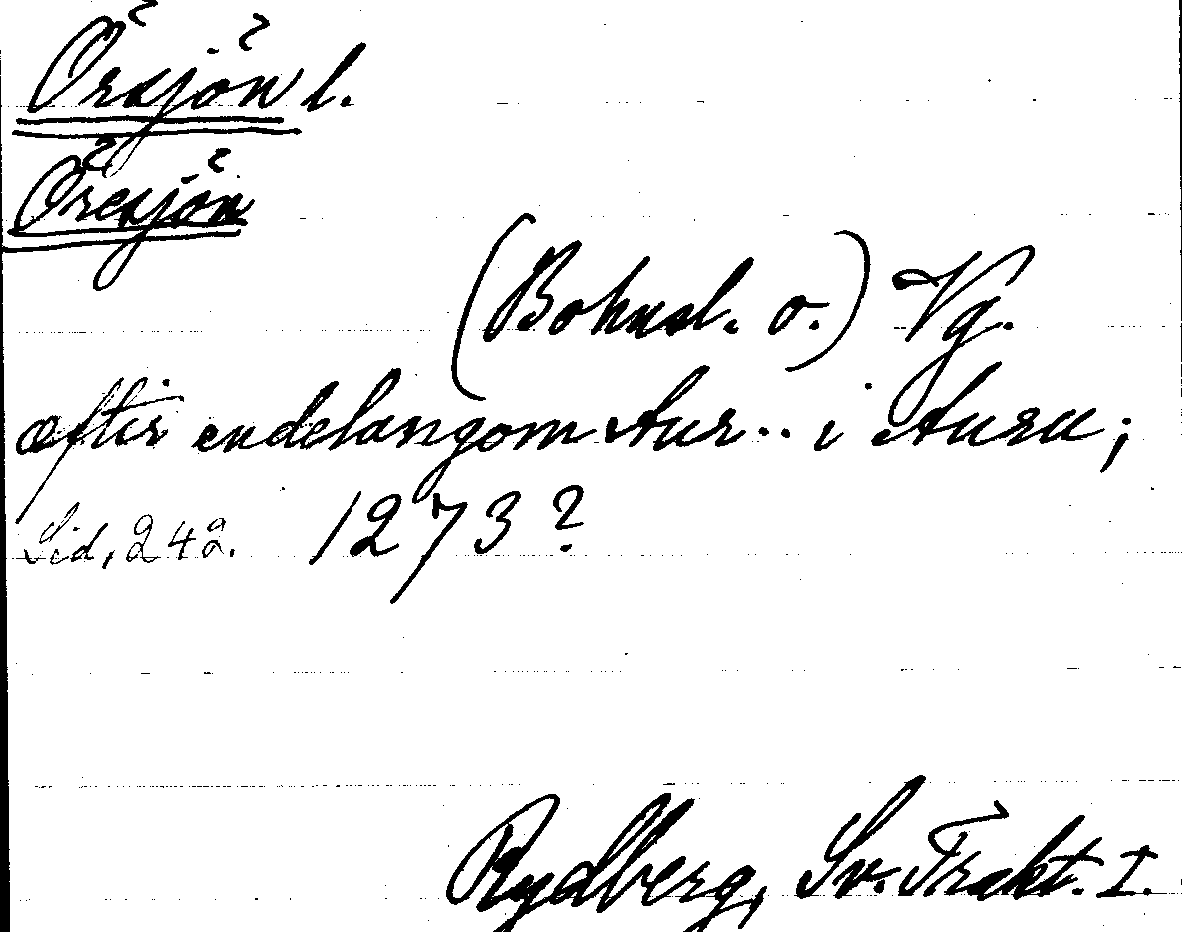 Örsjön l.
Örsjön
(Bohusl. o.) Vg.
æftir endelangom Aur.. i Auru;
Sid, 242. 1273?
Rydberg, Sv. Trakt. I.